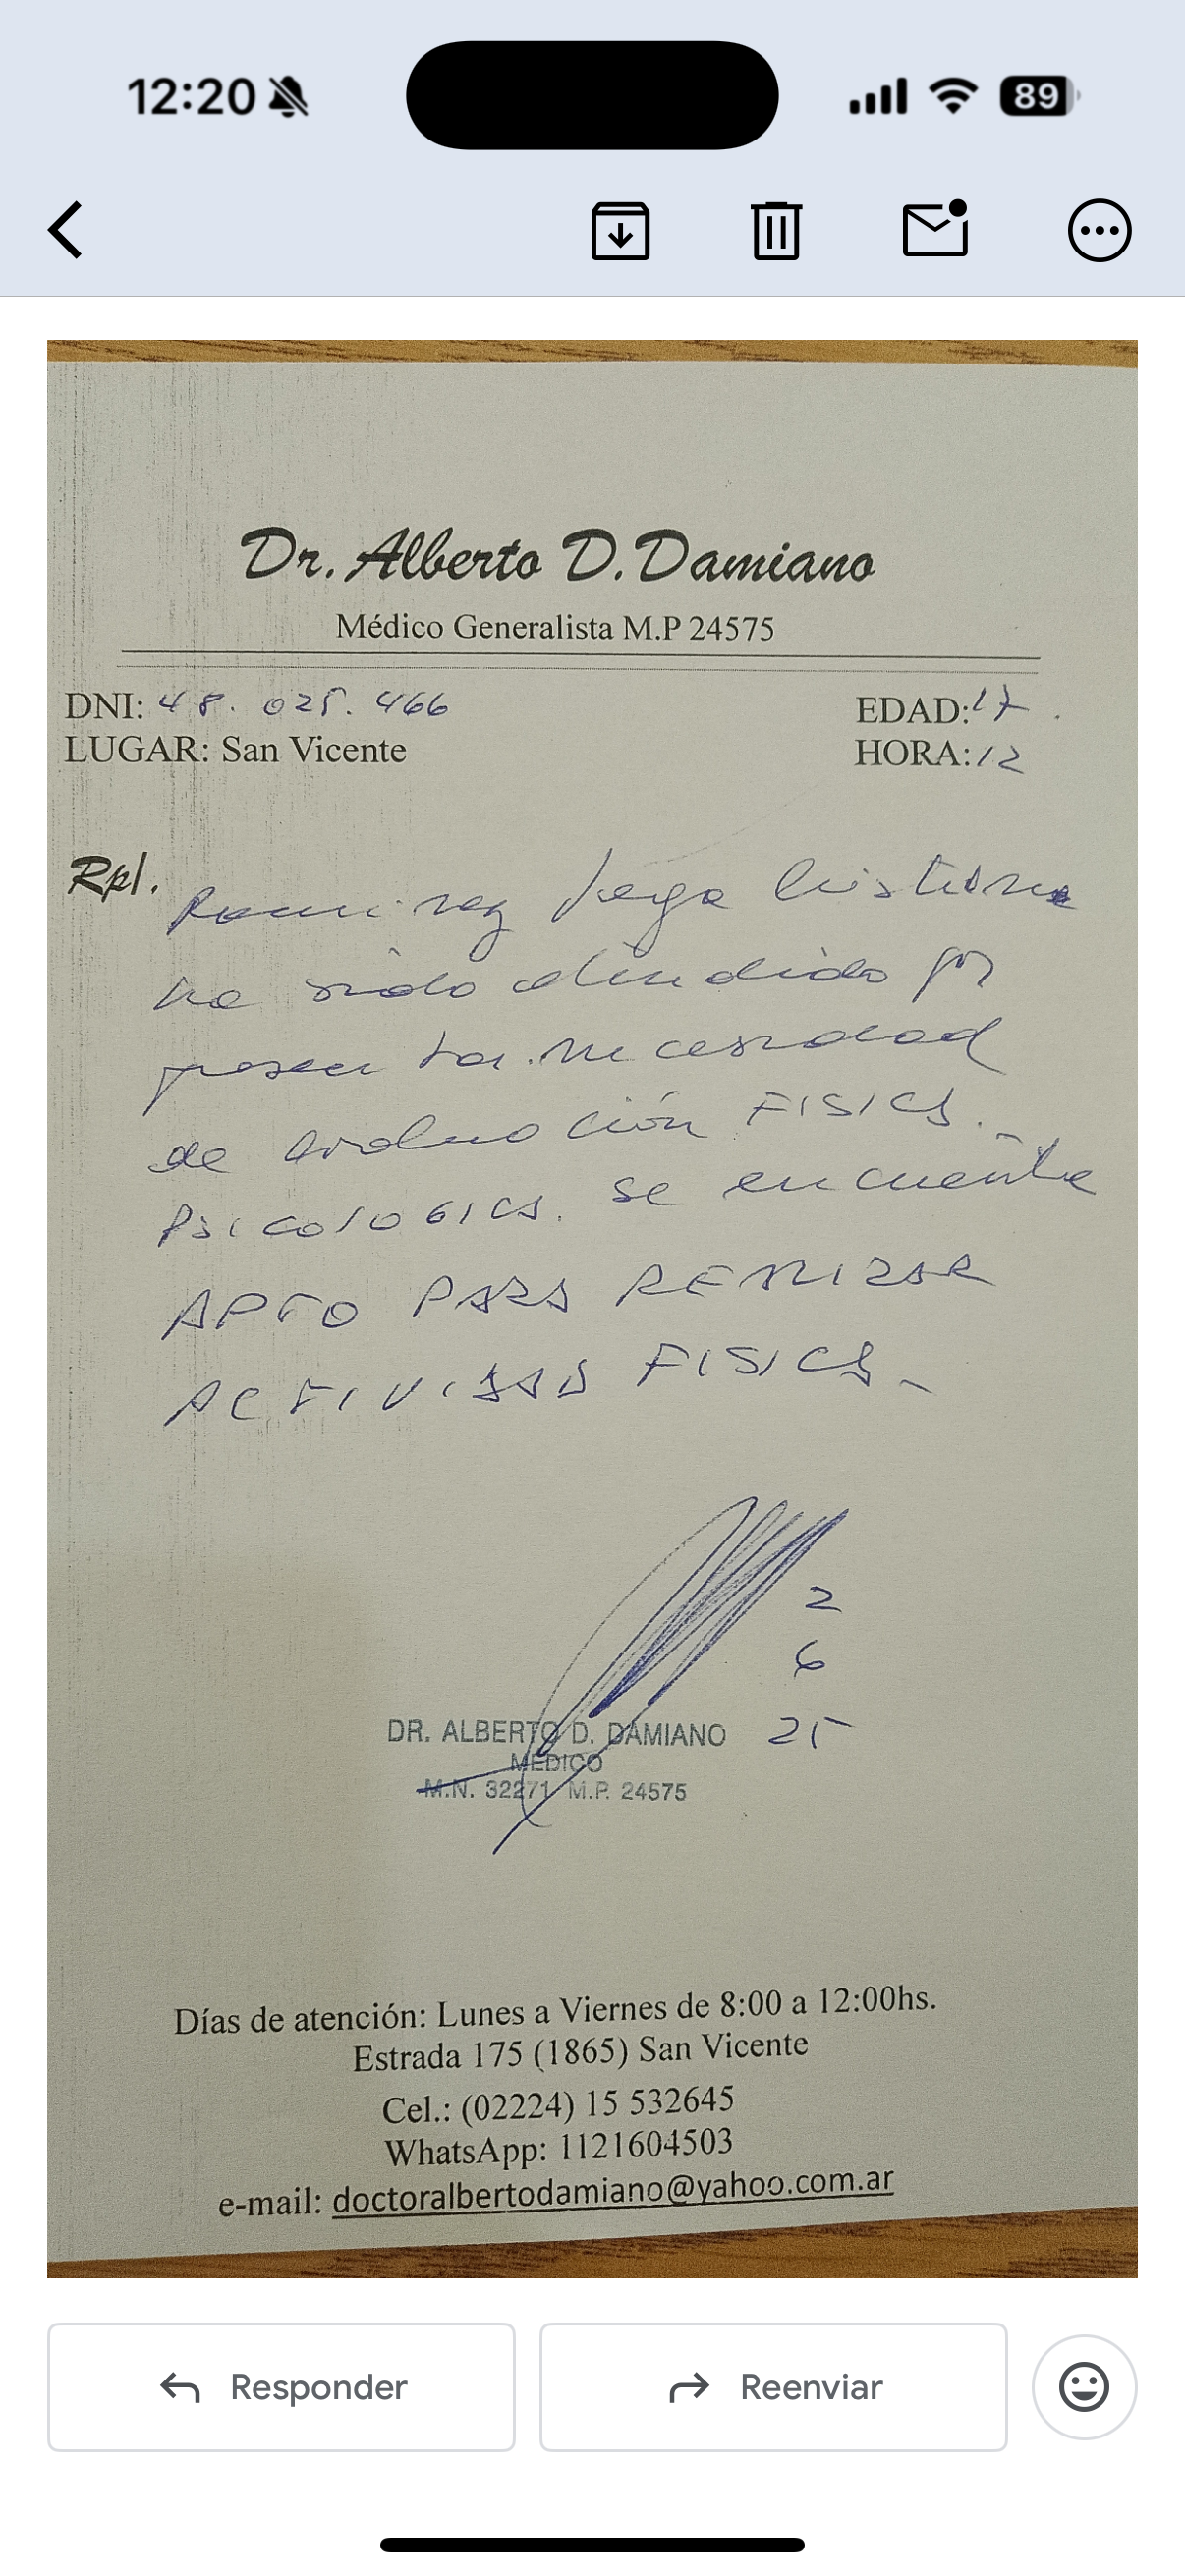 12:20
89
Dr. Alberto D. Damiano
Médico Generalista M.P 24575
DNI: 48.025.466
EDAD: 17.
LUGAR: San Vicente
HORA: 12
Rp/.
Ramirez Vega Cristian
ha sido atendido por
presentar necesidad
de evaluación FISICA.
PSICOLOGICA. se encuentra
APTO PARA REALIZAR
ACTIVIDAD FISICA
2
6
25
DR. ALBERTO D. DAMIANO
MEDICO
M.N. 32271 M.P. 24575
Días de atención: Lunes a Viernes de 8:00 a 12:00hs.
Estrada 175 (1865) San Vicente
Cel.: (02224) 15 532645
WhatsApp: 1121604503
e-mail: doctoralbertodamiano@yahoo.com.ar
Responder
Reenviar